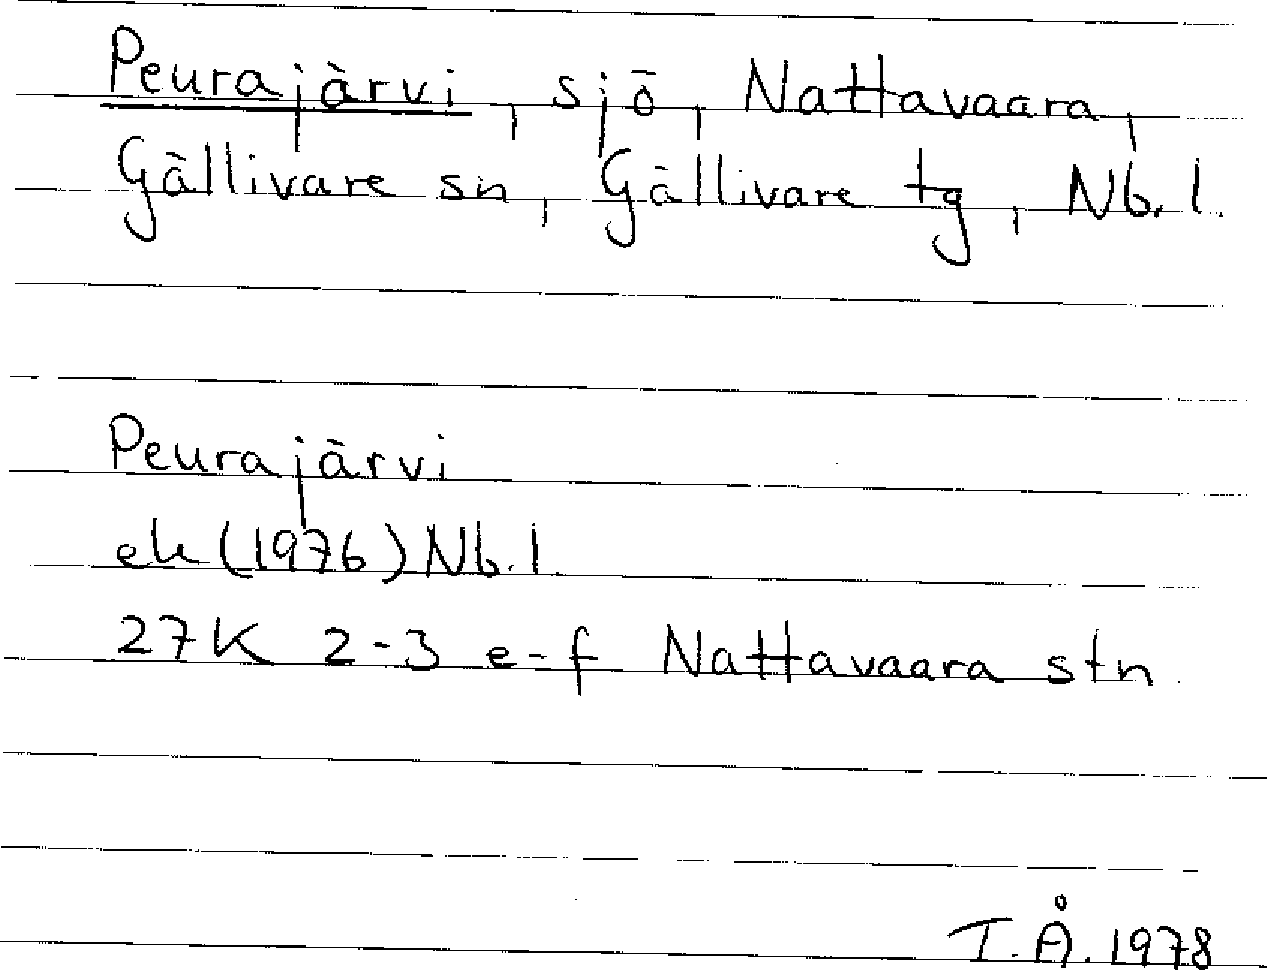 Peurajärvi, sjö, Nattavaara,
Gällivare sn, Gällivare tg, Nb.l.
Peurajärvi
ek (1976) Nb.l
27K 2-3 e-f Nattavaara stn
T.Å. 1978